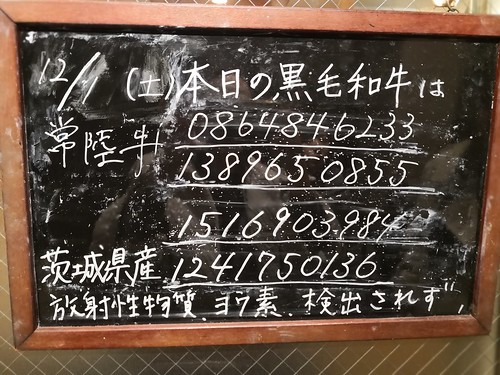 12/1 (土) 本日の黒毛和牛は
常陸牛 0864846233
1389650855
1516903984
茨城県産 1241750136
放射性物質、ヨウ素、検出されず",